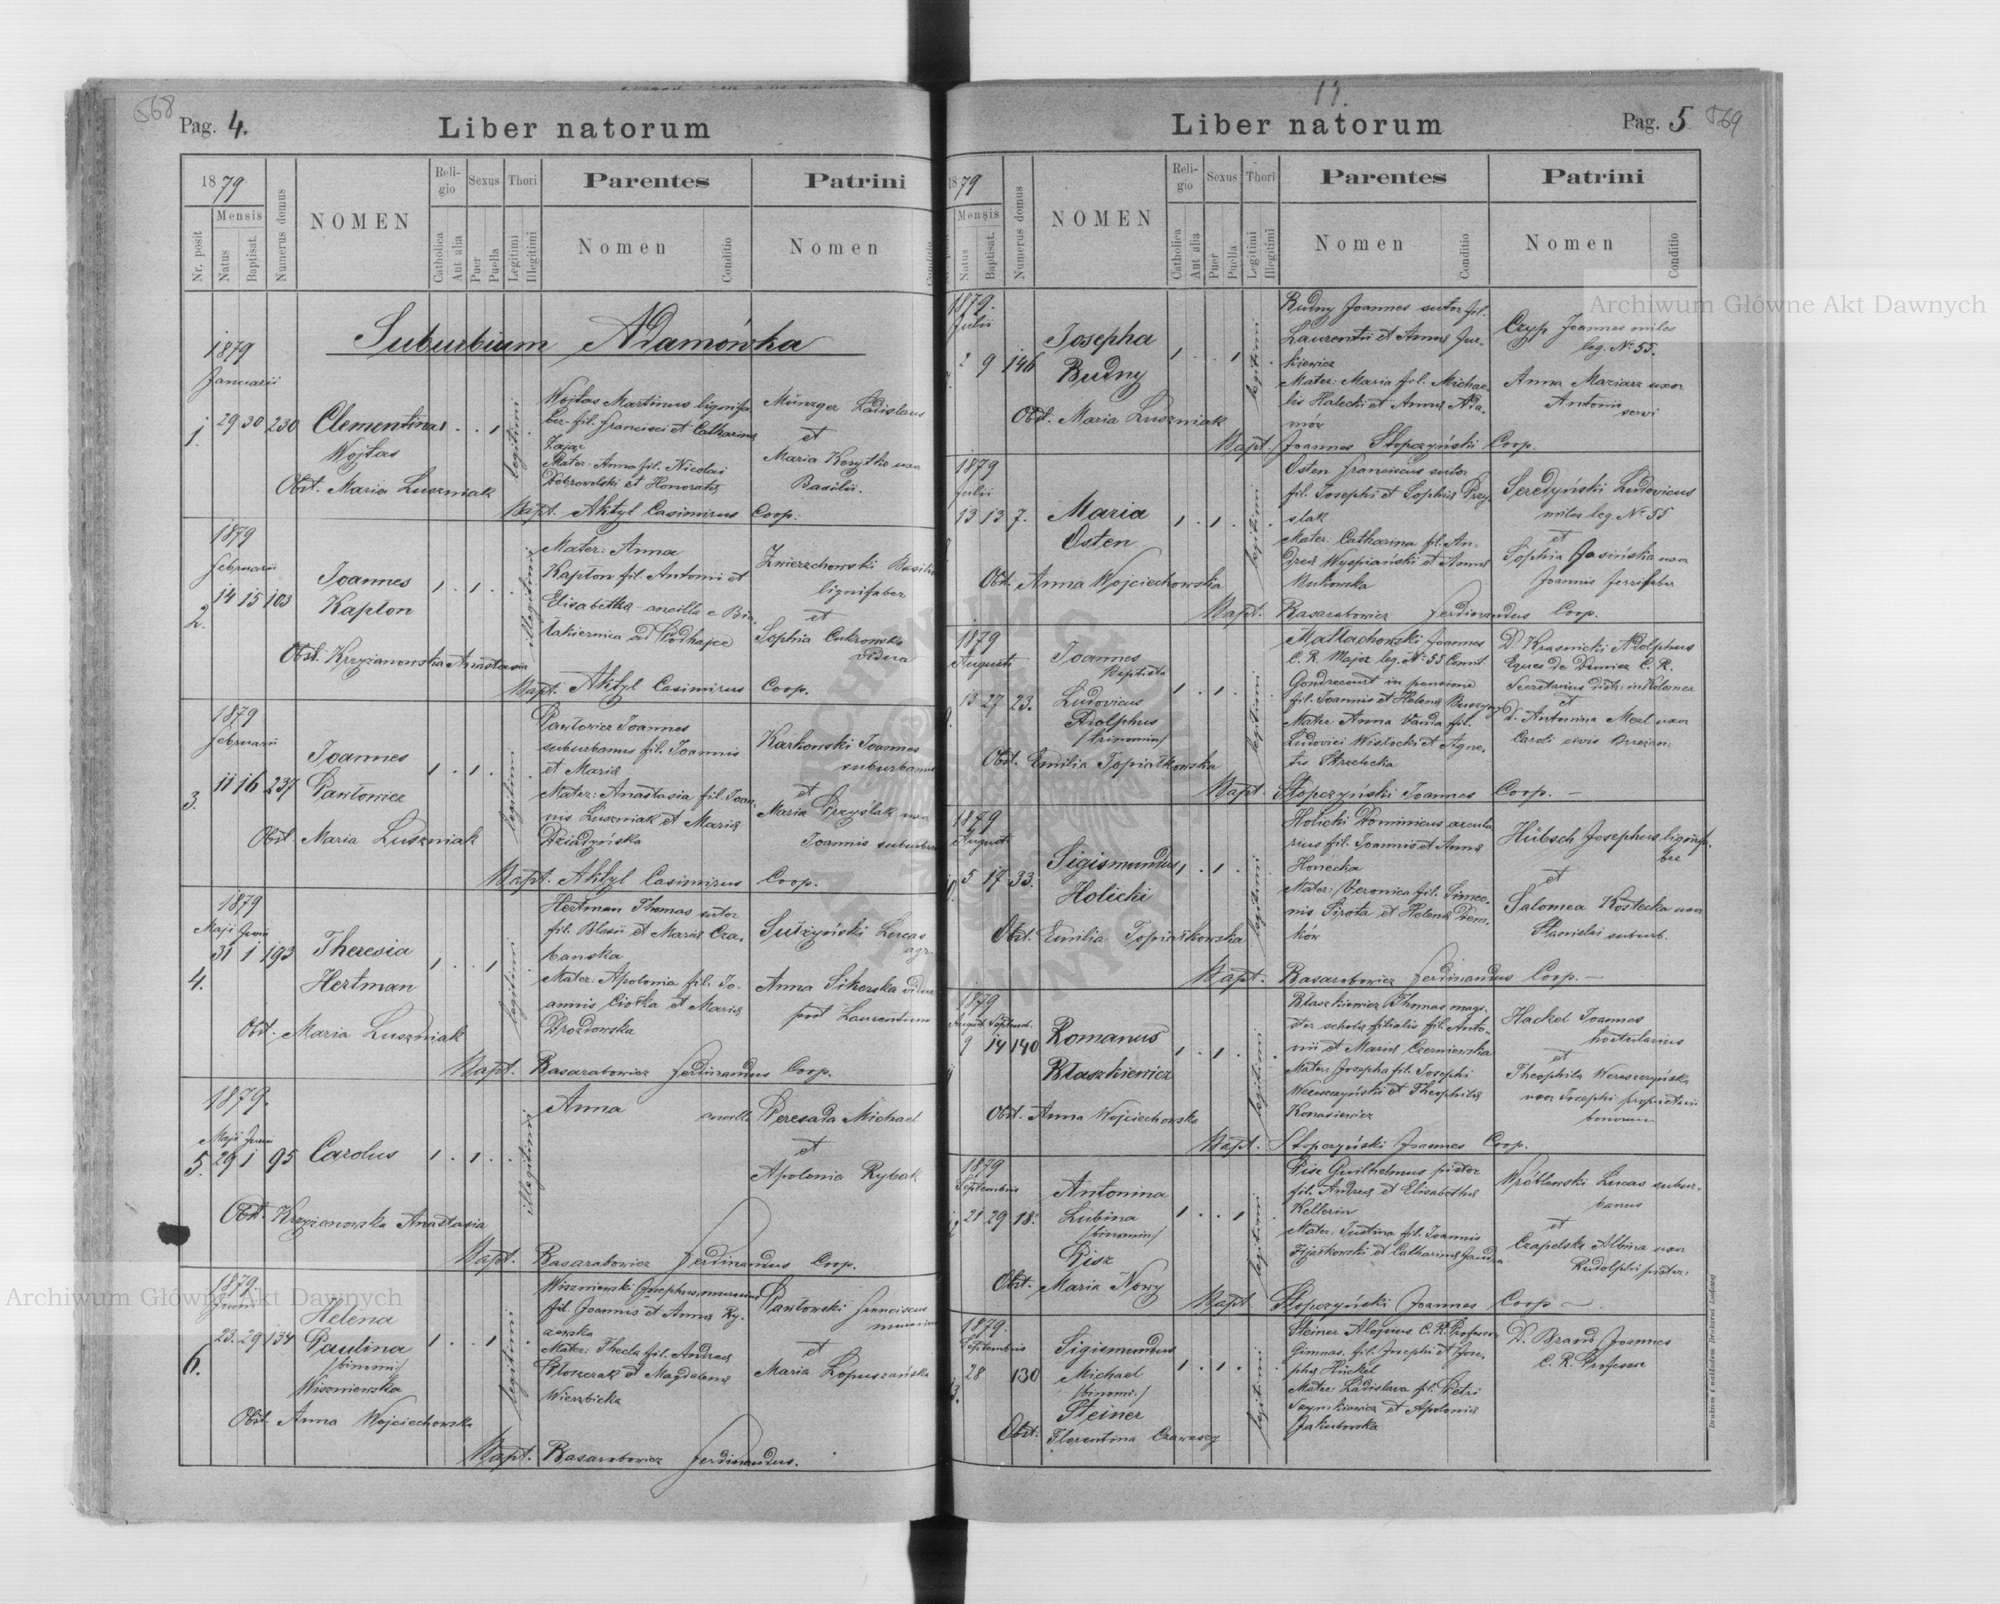 568
Pag. 4.
Liber natorum
1879
Nr. posit
Mensis
Natus
Baptisat.
Numerus domus
NOMEN
Reli-
gio
Catholica
Aut alia
Sexus
Puer
Puella
Thori
Legitimi
Illegitimi
Parentes
Nomen
Conditio
Patrini
Nomen
Suburbium Adamówka
1879
Januarii
1. 29 30 230
Clementina
Wojtas
1 . . 1 .
legitimi
Wojtas Martinus lignifa-
ber fil. Francisci et Catharina
Zając
Mater: Anna fil. Nicolai
Dobrovolski et Honorata
Münzger Ladislaus
et
Maria Korytko uxor
Basilii.
Obst. Maria Luszniak
Bapt. Aktyl Casimirus Coop.
1879
Februarii
2. 14 15 103
Joannes
Kapton
1 . 1 .
illegitimi
Mater: Anna
Kapton fil. Antonii et
Elisabetha ancilla e
ad Podhajce
Zwierzchowski Basilius
lignifaber
et
Sophia Cukrowska
vidua
Obst. Krzyżanowska Anastasia
Bapt. Aktyl Casimirus Coop.
1879
Februarii
3. 11 16 237
Joannes
Pawlowicz
1 . 1 .
legitimi
Pawlowicz Joannes
suburbanus fil. Joannis
et Maria
Mater: Anastasia fil. Joan-
nis Luszniak et Maria
Dziadyńska
Karkowski Joannes
suburbanus
et
Maria Przyślak uxor
Joannis suburb
Obst. Maria Luszniak
Bapt. Aktyl Casimirus Coop.
1879
Maji Junii
4. 31 1 193
Theresia
Hertman
1 . . 1 .
legitimi
Hertman Thomas sutor
fil. Blasii et Maria Cza-
banska
Mater: Apolonia fil. Jo-
annis Ciołka et Maria
Drozdowska
Sułzyński Lucas
agr.
Anna Sikorska vidua
post Laurentium
Obst. Maria Luszniak
Bapt. Basarabowicz Ferdinandus Coop.
1879.
Maji Junii
5. 29 1 95
Carolus
1 . 1 .
illegitimi
Anna ancilla
Peresada Michael
et
Apolonia Rybak
Obst. Krzyżanowska Anastasia
Bapt. Basarabowicz Ferdinandus Coop.
1879
Junii
6. 23. 29 134
Helena
Paulina
/binomi:/
Wiszniewska
1 . . 1 .
legitimi
Wiszniewski Josephus murarius
fil. Joannis et Anna Ry-
Mater: Thecla fil. Andrea
et Magdalena
Wierzbicka
Pawlowski Franciscus
et
Maria Łopuszańska
Obst. Anna Wojciechowska
Bapt. Basarabowicz Ferdinandus.
13.
Liber natorum
Pag. 5 569
1879
Mensis
Natus
Baptisat.
Numerus domus
NOMEN
Reli-
gio
Catholica
Aut alia
Sexus
Puer
Puella
Thori
Legitimi
Illegitimi
Parentes
Nomen
Conditio
Patrini
Nomen
Conditio
1879.
Julii
2 9 146
Josepha
Budny
1 . . 1 .
legitimi
Budny Joannes sutor fil.
Laurentii et Anna Jur-
kiewicz
Mater: Maria fil. Michae-
lis Halecki et Anna Ada-
mór
Czyp Joannes miles
leg. No 55.
Anna Maziarz uxor
Antonii
servi
Obst. Maria Luszniak
Bapt. Joannes Stopczyński Coop.
1879
Julii
13 13 7.
Maria
Osten
1 . 1 .
legitimi
Osten Franciscus sutor
fil. Josephi et Sophia Przy-
slak
Mater: Catharina fil. An-
drea Wyspiański et Anna
Bukowska
Seredyński Ludovicus
miles leg. No 55
et
Sophia Jasińska uxor
Joannis ferrifaber
Obst. Anna Wojciechowska
Bapt. Basarabowicz Ferdinandus Coop.
1879
Augusti
13 27 23.
Joannes
Baptista
Ludovicus
Adolphus
/trinomin/
1 . 1 .
legitimi
Małłachowski Joannes
C. R. Major leg. No 55 Comit.
Gondrecourt in pensione
fil. Joannis et Helena
Mater: Anna Vanda fil.
Ludovici Wisłocki et Agne-
tis Strzelecka
D. Krasnicki Adolphus
Eques de C. R.
Secretarius distr: in Kolomea
et
D. Antonina Merl uxor
Caroli civis Brzezan:
Obst. Emilia Topiałkowska
Bapt. Stopczyński Joannes Coop. —
1879
August
5 17 33.
Sigismundus
Holicki
1 . 1 .
legitimi
Holicki Dominicus arcula-
rius fil. Joannis et Anna
Honecka
Mater: Veronica fil. Simeo-
nis Sirota et Helena Dem-
kór
Hübsch Josephus lignifa-
ber
et
Salomea Kostecka uxor
Stanislai suburb.
Obst. Emilia Topiałkowska
Bapt. Basarabowicz Ferdinandus Coop. —
1879
August Septemb.
9 14 140
Romanus
Błaszkiewicz
1 . 1 .
legitimi
Błaszkiewicz Thomas magi-
ster schola filialis fil. Anto-
nii et Maria Czerniewska
Mater: Josepha fil. Josephi
Wereszczyński et Theophila
Konasiewicz
Hackel Joannes
hortulanus
et
Theophila Wereszczyńska
uxor Josephi proprietarii
bonorum
Obst. Anna Wojciechowska
Bapt. Stopczyński Joannes Coop.
1879
Septembris
21 29 18.
Antonina
Lubina
/binomin/
Pisz
1 . . 1 .
legitimi
Pisz Guilhelmus pictor
fil. Andrea et Elisabetha
Kellerin
Mater: Justina fil. Joannis
et Catharina
Wróblewski Lucas subur-
banus
et
Czapelska Albina uxor
Rudolphi pictor:
Obst. Maria Nowy
Bapt. Stopczyński Joannes Coop —
1879.
Septembris
28 130
Sigismundus
Michael
/binomi:/
Steiner
1 . 1 .
legitimi
Steiner Aloysius C. R. Professor
Gimnas. fil. Josephi et Jose-
pha Hickel
Mater: Ladislava fil. Petri
Szymkiewicz et Apolonia
Jakubowska
D. Brand Joannes
C. R. Professor
Obst: Florentina
Archiwum Główne Akt Dawnych
Archiwum Główne Akt Dawnych